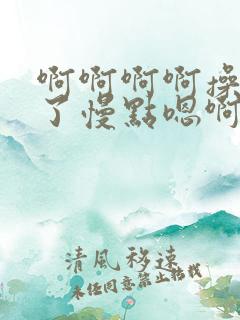 啊啊啊啊操
了慢點嗯啊
清風移遠
未經同意禁止轉載